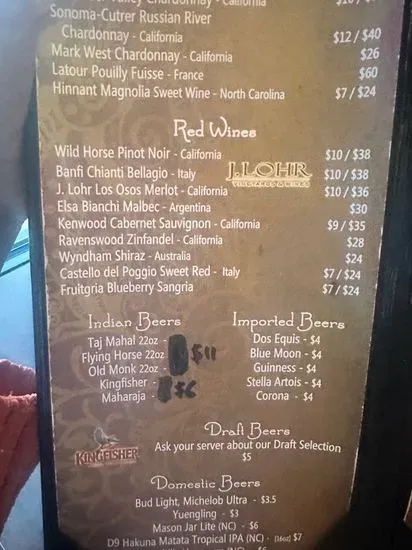 Valley Chardonnay - California
Sonoma-Cutrer Russian River
Chardonnay - California $12 / $40
Mark West Chardonnay - California $26
Latour Pouilly Fuisse - France $60
Hinnant Magnolia Sweet Wine - North Carolina $7 / $24
Red Wines
Wild Horse Pinot Noir - California $10 / $38
Banfi Chianti Bellagio - Italy $10 / $38
J. Lohr Los Osos Merlot - California $10 / $36
Elsa Bianchi Malbec - Argentina $30
Kenwood Cabernet Sauvignon - California $9 / $35
Ravenswood Zinfandel - California $28
Wyndham Shiraz - Australia $24
Castello del Poggio Sweet Red - Italy $7 / $24
Fruitgria Blueberry Sangria $7 / $24
J. LOHR
VINEYARDS & WINES
Indian Beers
Taj Mahal 22oz -
Flying Horse 22oz $11
Old Monk 22oz -
Kingfisher -
Maharaja - $6
Imported Beers
Dos Equis - $4
Blue Moon - $4
Guinness - $4
Stella Artois - $4
Corona - $4
KINGFISHER
Draft Beers
Ask your server about our Draft Selection
$5
Domestic Beers
Bud Light, Michelob Ultra - $3.5
Yuengling - $3
Mason Jar Lite (NC) - $6
D9 Hakuna Matata Tropical IPA (NC) - (16oz) $7